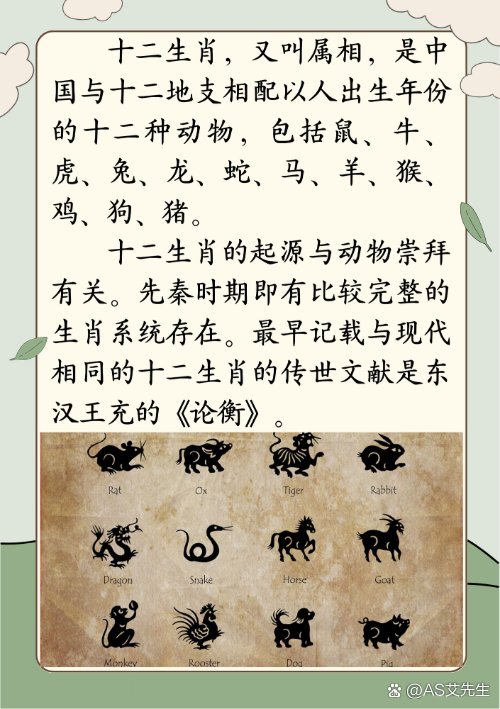 十二生肖，又叫属相，是中
国与十二地支相配以人出生年份
的十二种动物，包括鼠、牛、
虎、兔、龙、蛇、马、羊、猴、
鸡、狗、猪。
十二生肖的起源与动物崇拜
有关。先秦时期即有比较完整的
生肖系统存在。最早记载与现代
相同的十二生肖的传世文献是东
汉王充的《论衡》。
Rat Ox Tiger Rabbit
Dragon Snake Horse Goat
Monkey Rooster Dog Pig
@AS艾先生